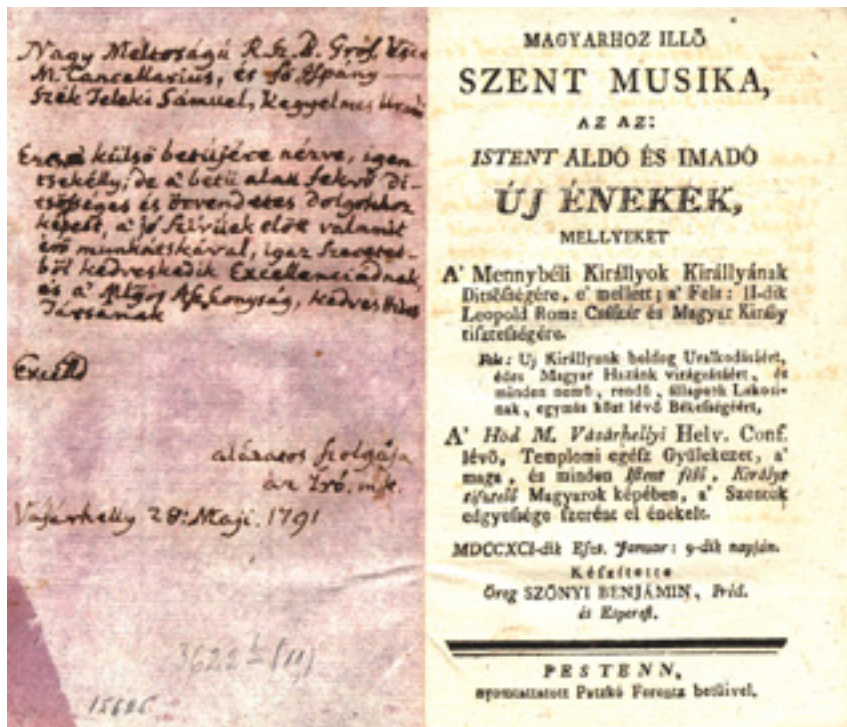 Nagy Méltoságú R. Sz. B. Gróf
M. Cancellarius, és Fö Ispány
Szék Teleki Sámuel, Kegyelmes
külsö betüjére nézve, igen
tsekélly, de a' betü alatt fekvö di-
tsösséges és örvendetes dolgokhoz
képest, a' jó szívüek elött valamit
érö munkátskával, igaz szeretet-
böl kedveskedik Excellentiádnak
és a' Aszszonyság, kedves
Társának
alázatos szolgája
az Iró. mk.
Vásárhelly 28: Maji. 1791
3622 (11)
MAGYARHOZ ILLŐ
SZENT MUSIKA,
AZ AZ:
ISTENT ÁLDÓ ÉS IMÁDÓ
ÚJ ÉNEKEK,
MELLYEKET
A' Mennybéli Királlyok Királlyának
Ditsősségére, e' mellett; a' Fels: II-dik
Leopold Rom: Császár és Magyar Király
tisztességére.
Fels: Uj Királlyunk boldog Uralkodásáért,
édes Magyar Hazánk virágzásáért, és
minden nemű, rendű, állapatú Lakosi-
nak, egymás közt lévő Békességéért,
A' Hód M. Vásárhellyi Helv. Conf.
lévő, Templomi egész Gyülekezet, a'
maga, és minden Istent félő, Királyt
tisztelő Magyarok képében, a' Szentek
edgyessége szerént el énekelt.
MDCCXCI-dik Eszt. Januar: 9-dik napján.
Készítette
Öreg SZŐNYI BENJÁMIN, Préd.
és Esperest.
PESTENN,
nyomtattatott Patzkó Ferentz betűivel.